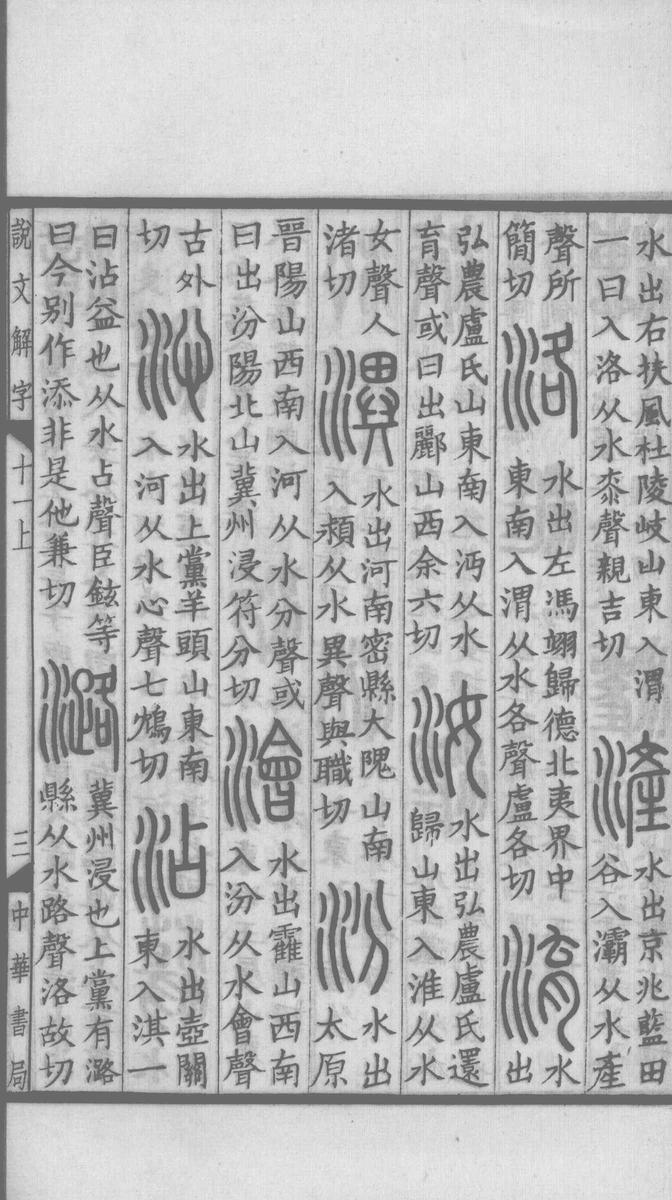 水出右扶風杜陵岐山東入渭
一曰入洛从水桼聲親吉切
滻
水出京兆藍田
谷入灞从水產
聲所
簡切
洛
水出左馮翊歸德北夷界中
東南入渭从水各聲盧各切
淯
水
出
弘農盧氏山東南入沔从水
育聲或曰出酈山西余六切
汝
水出弘農盧氏還
歸山東入淮从水
女聲人
渚切
潩
水出河南密縣大隗山南
入潁从水異聲與職切
汾
水出
太原
晉陽山西南入河从水分聲或
曰出汾陽北山冀州浸符分切
澮
水出靃山西南
入汾从水會聲
古外
切
沁
水出上黨羊頭山東南
入河从水心聲七鴆切
沾
水出壺關
東入淇一
曰沾益也从水占聲臣鉉等
曰今别作添非是他兼切
潞
冀州浸也上黨有潞
縣从水路聲洛故切
說文解字
十一上
三
中華書局